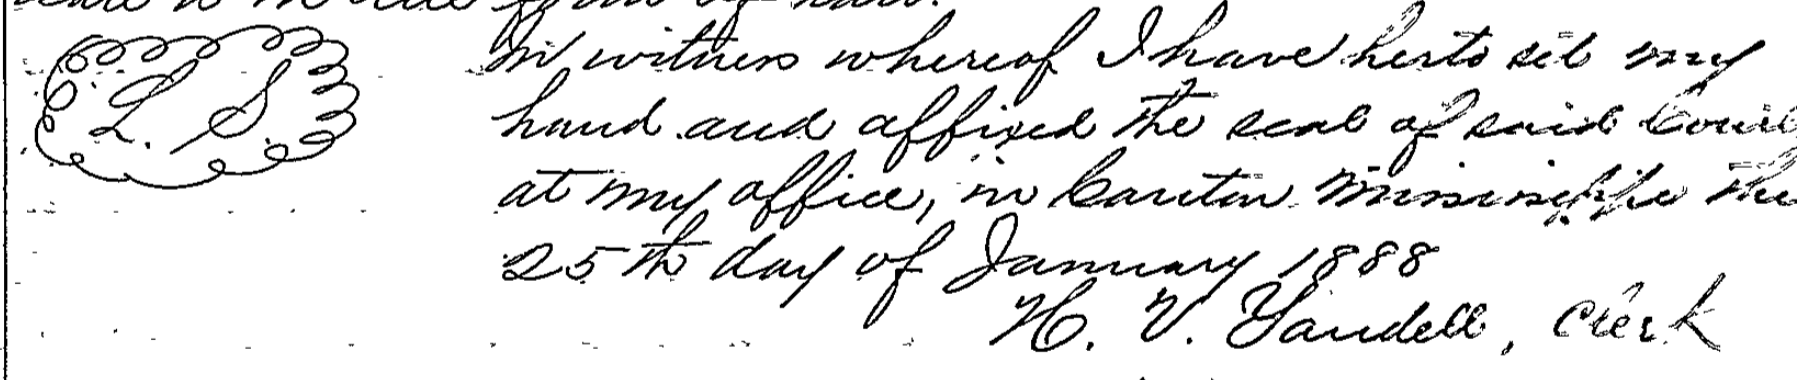 In witness whereof I have herto set my
L. S.
hand and affixed the seal of said
at my office, in Canton Mississippi the
25th day of January 1888
H. V. Yandell, Clerk